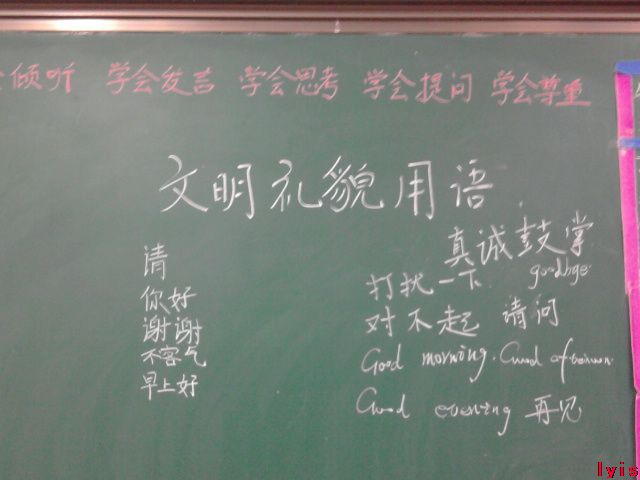 倾听 学会发言 学会思考 学会提问 学会尊重
文明礼貌用语
真诚鼓掌
请
打扰一下 goodbye
你好
对不起 请问
谢谢
不客气
Good morning. Good afternoon
早上好
Good evening 再见
lyis